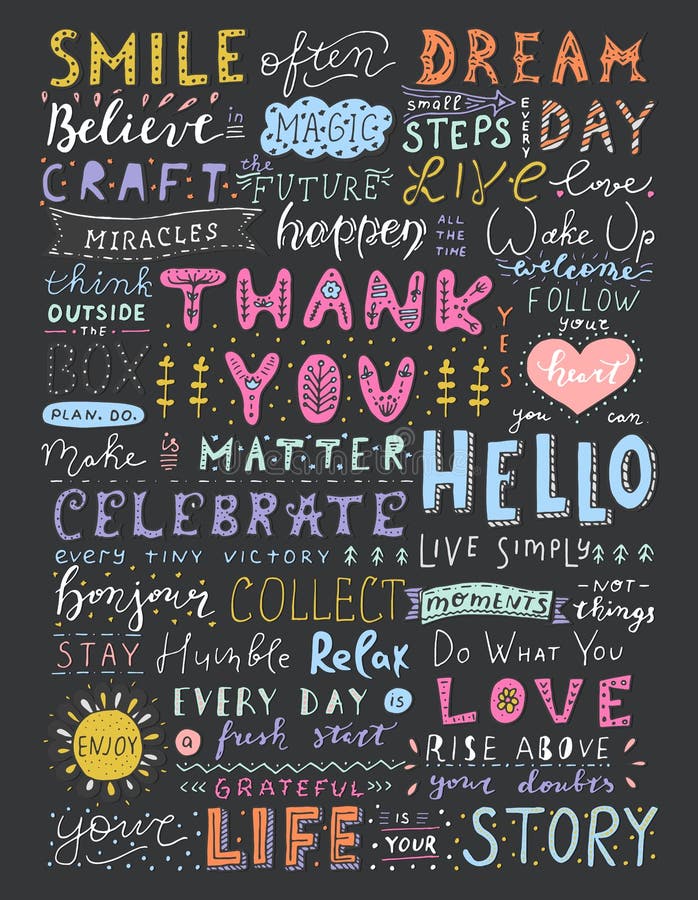 SMILE often DREAM
Believe in MAGIC small STEPS EVERY DAY
CRAFT the FUTURE LIVE love
MIRACLES happen ALL THE TIME Wake Up
think OUTSIDE the BOX
THANK YOU
welcome
FOLLOW your heart
YES you can
PLAN. DO.
Make is MATTER
HELLO
CELEBRATE every TINY VICTORY
LIVE SIMPLY
bonjour COLLECT MOMENTS -NOT- things
STAY Humble Relax Do What You LOVE
ENJOY
EVERY DAY is a fresh start
RISE ABOVE your doubts
<<GRATEFUL>>
your LIFE IS YOUR STORY